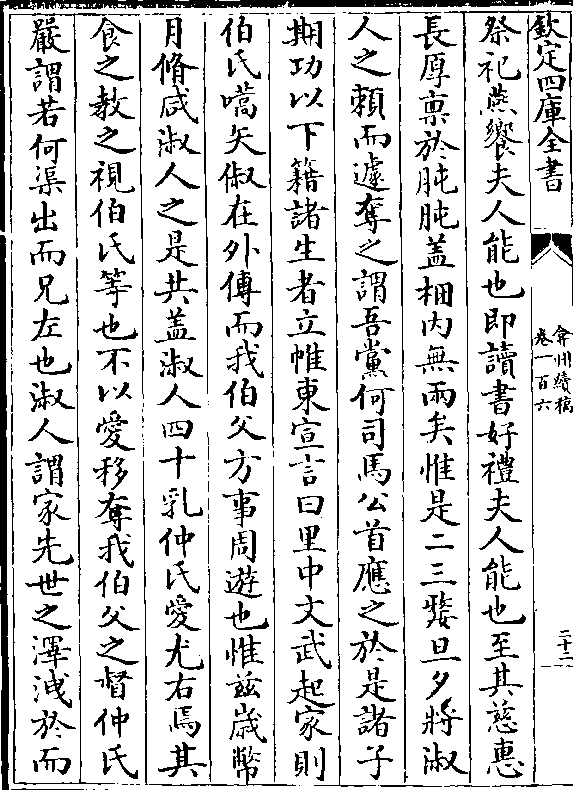 欽定四庫全書
弇州續稿
卷一百六
二十二
祭祀燕饗夫人能也即讀書好禮夫人能也至其慈惠
長厚禀於肫肫盖梱内無兩矣惟是二三嫠旦夕將淑
人之頼而遽奪之謂吾黨何司馬公首應之於是諸子
期功以下籍諸生者立帷東宣言曰里中文武起家則
伯氏嚆矢俶在外傅而我伯父方事周遊也惟兹嵗幣
月脩咸淑人之是共盖淑人四十乳仲氏愛尤右焉其
食之教之視伯氏等也不以愛移奪我伯父之督仲氏
嚴謂若何渠出而兄左也淑人謂家先世之澤洩於而